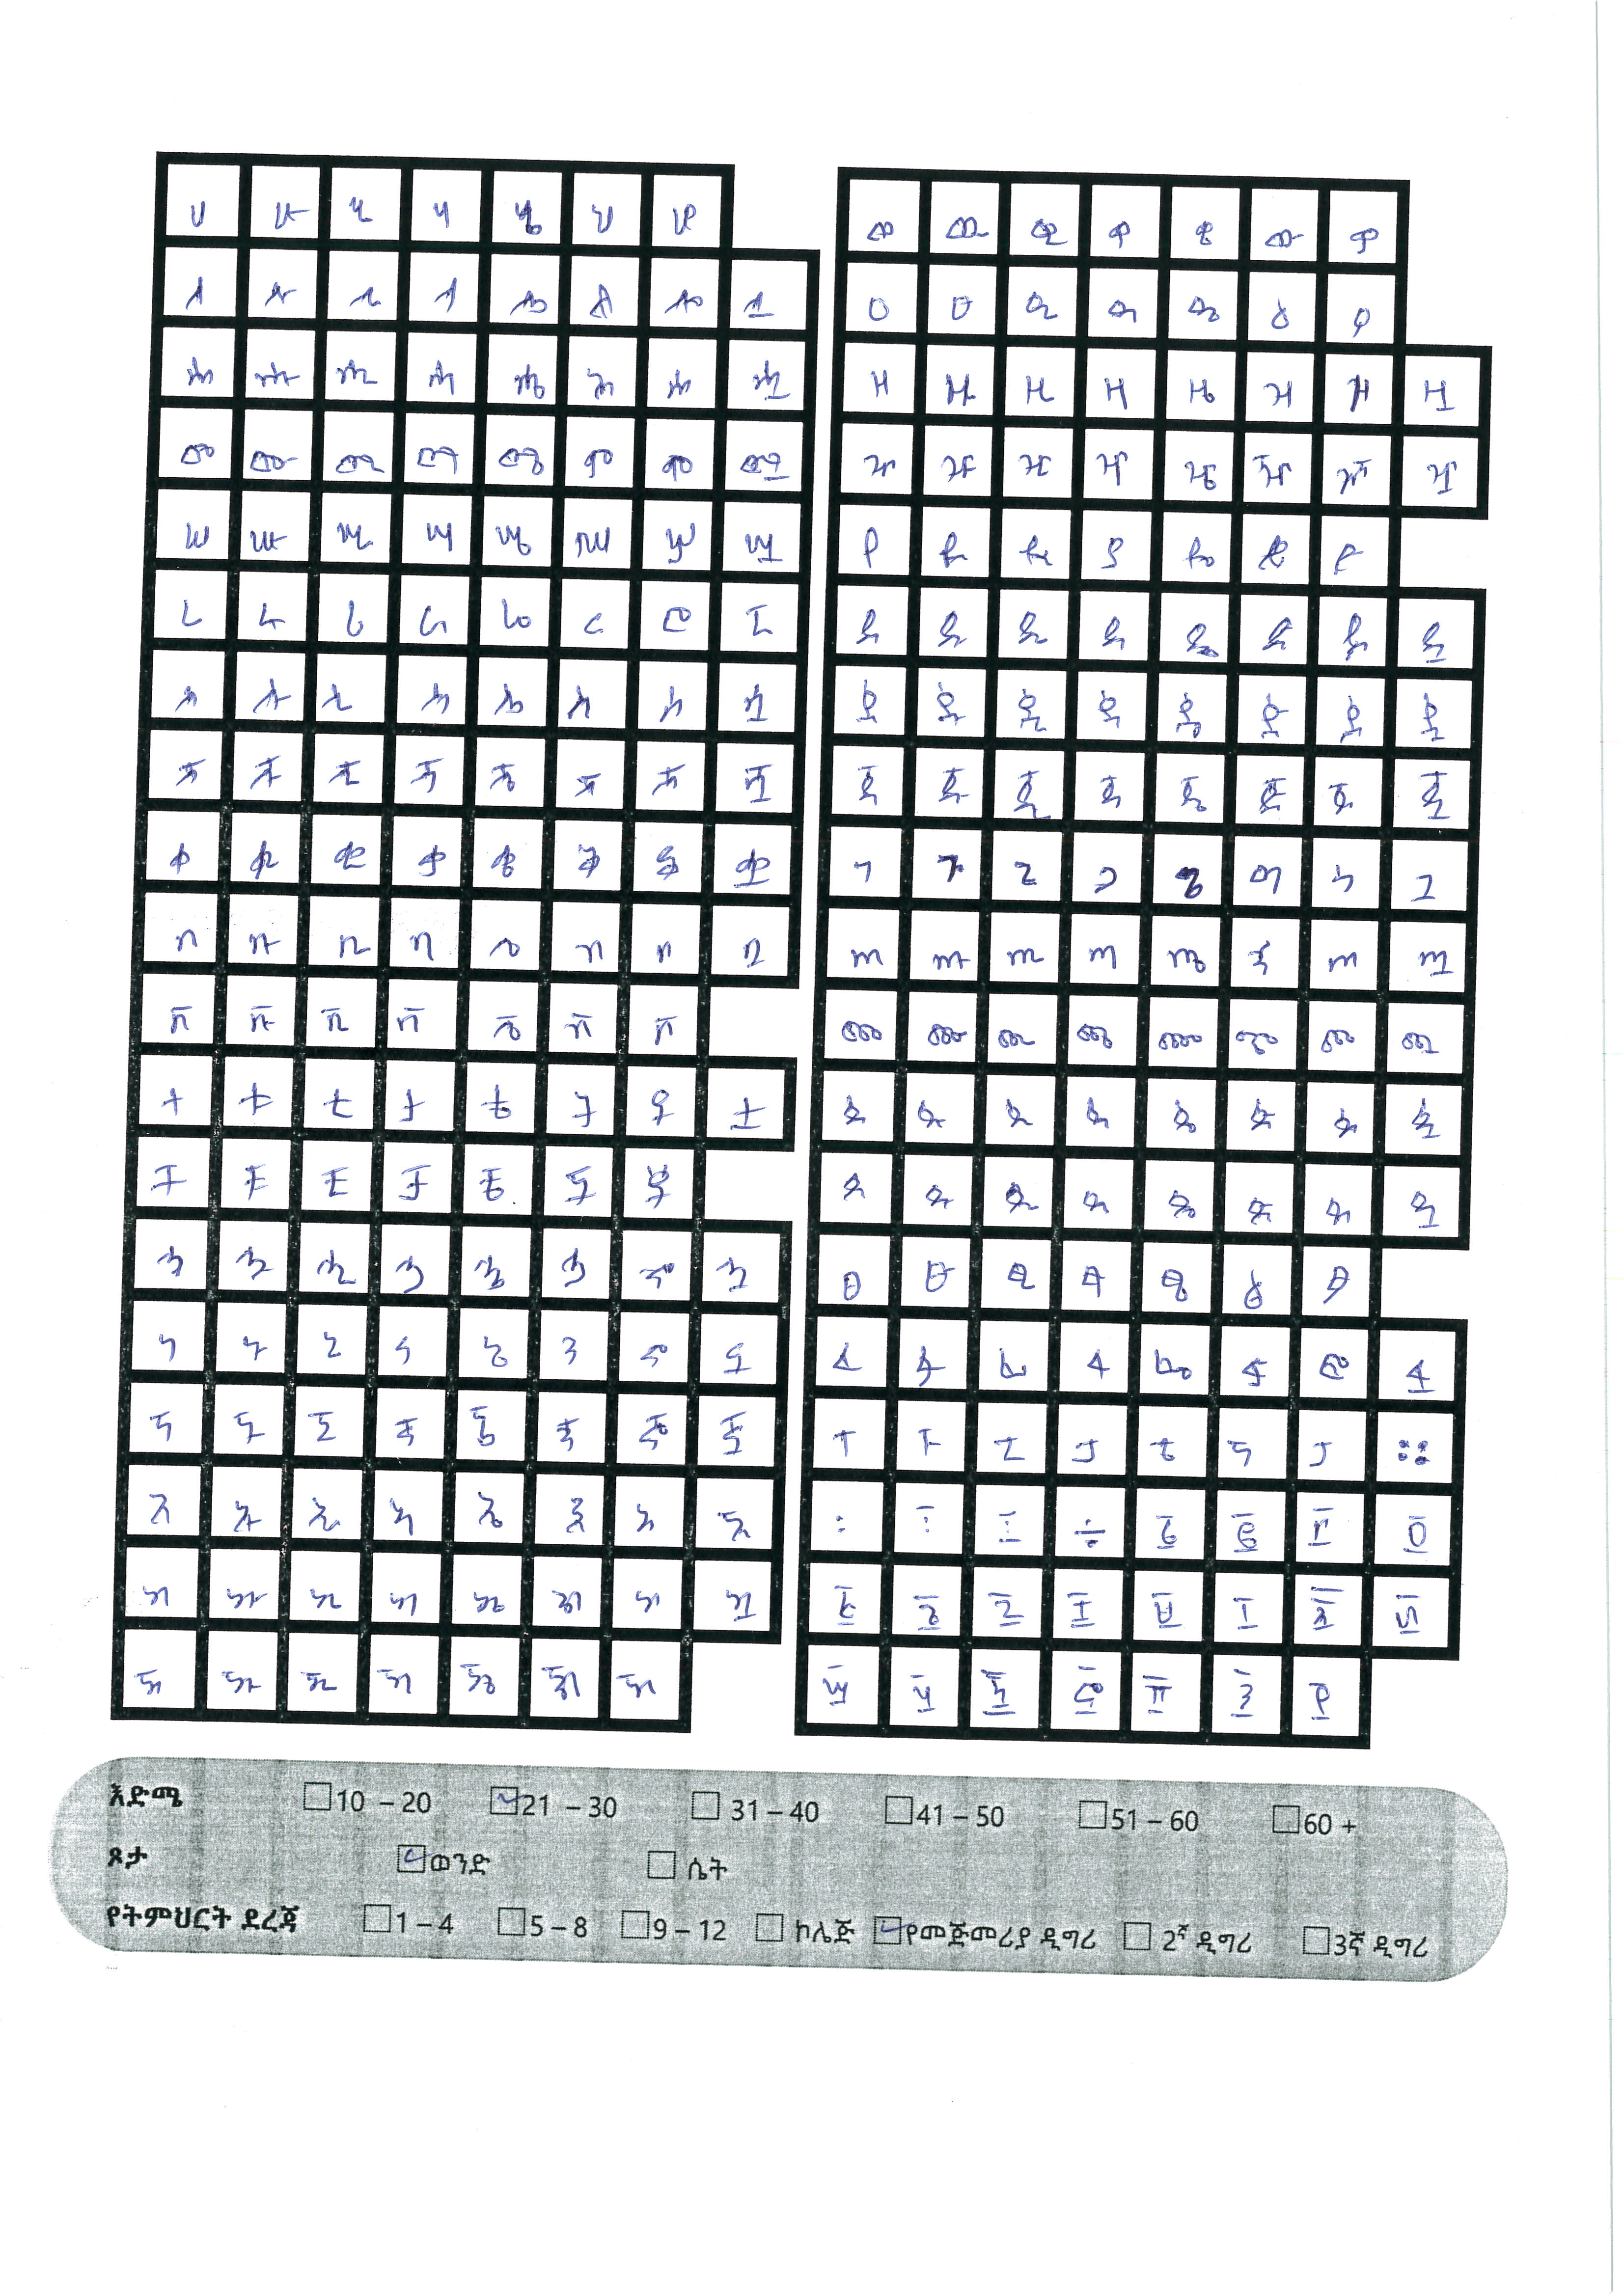 ሀ ሁ ሂ ሃ ሄ ህ ሆ
ለ ሉ ሊ ላ ሌ ል ሎ ሏ
ሐ ሑ ሒ ሓ ሔ ሕ ሖ ሗ
መ ሙ ሚ ማ ሜ ም ሞ ሟ
ሠ ሡ ሢ ሣ ሤ ሥ ሦ ሧ
ረ ሩ ሪ ራ ሬ ር ሮ ሯ
ሰ ሱ ሲ ሳ ሴ ስ ሶ ሷ
ሸ ሹ ሺ ሻ ሼ ሽ ሾ ሿ
ቀ ቁ ቂ ቃ ቄ ቅ ቆ ቋ
በ ቡ ቢ ባ ቤ ብ ቦ ቧ
ቨ ቩ ቪ ቫ ቬ ቭ ቮ
ተ ቱ ቲ ታ ቴ ት ቶ ቷ
ቸ ቹ ቺ ቻ ቼ ች ቾ
ኀ ኁ ኂ ኃ ኄ ኅ ኆ ኋ
ነ ኑ ኒ ና ኔ ን ኖ ኗ
ኘ ኙ ኚ ኛ ኜ ኝ ኞ ኟ
አ ኡ ኢ ኣ ኤ እ ኦ ኧ
ከ ኩ ኪ ካ ኬ ክ ኮ ኳ
ኸ ኹ ኺ ኻ ኼ ኽ ኾ
ወ ዉ ዊ ዋ ዌ ው ዎ
ዐ ዑ ዒ ዓ ዔ ዕ ዖ
ዘ ዙ ዚ ዛ ዜ ዝ ዞ ዟ
ዠ ዡ ዢ ዣ ዤ ዥ ዦ ዧ
የ ዩ ዪ ያ ዬ ይ ዮ
ደ ዱ ዲ ዳ ዴ ድ ዶ ዷ
ዸ ዹ ዺ ዻ ዼ ዽ ዾ ዿ
ጀ ጁ ጂ ጃ ጄ ጅ ጆ ጇ
ገ ጉ ጊ ጋ ጌ ግ ጎ ጓ
ጠ ጡ ጢ ጣ ጤ ጥ ጦ ጧ
ጨ ጩ ጪ ጫ ጬ ጭ ጮ ጯ
ጰ ጱ ጲ ጳ ጴ ጵ ጶ ጷ
ጸ ጹ ጺ ጻ ጼ ጽ ጾ ጿ
ፀ ፁ ፂ ፃ ፄ ፅ ፆ
ፈ ፉ ፊ ፋ ፌ ፍ ፎ ፏ
ፐ ፑ ፒ ፓ ፔ ፕ ፖ ።
፩ ፪ ፫ ፬
፭ ፮ ፯ ፰ ፱ ፲ ፳ ፴
፵ ፶ ፷ ፸ ፹ ፺ ፻
እድሜ 10 – 20 21 – 30 31 – 40 41 – 50 51 – 60 60 +
ጾታ ወንድ ሴት
የትምህርት ደረጃ 1 – 4 5 – 8 9 – 12 ኮሌጅ የመጀመሪያ ዲግሪ 2ኛ ዲግሪ 3ኛ ዲግሪ